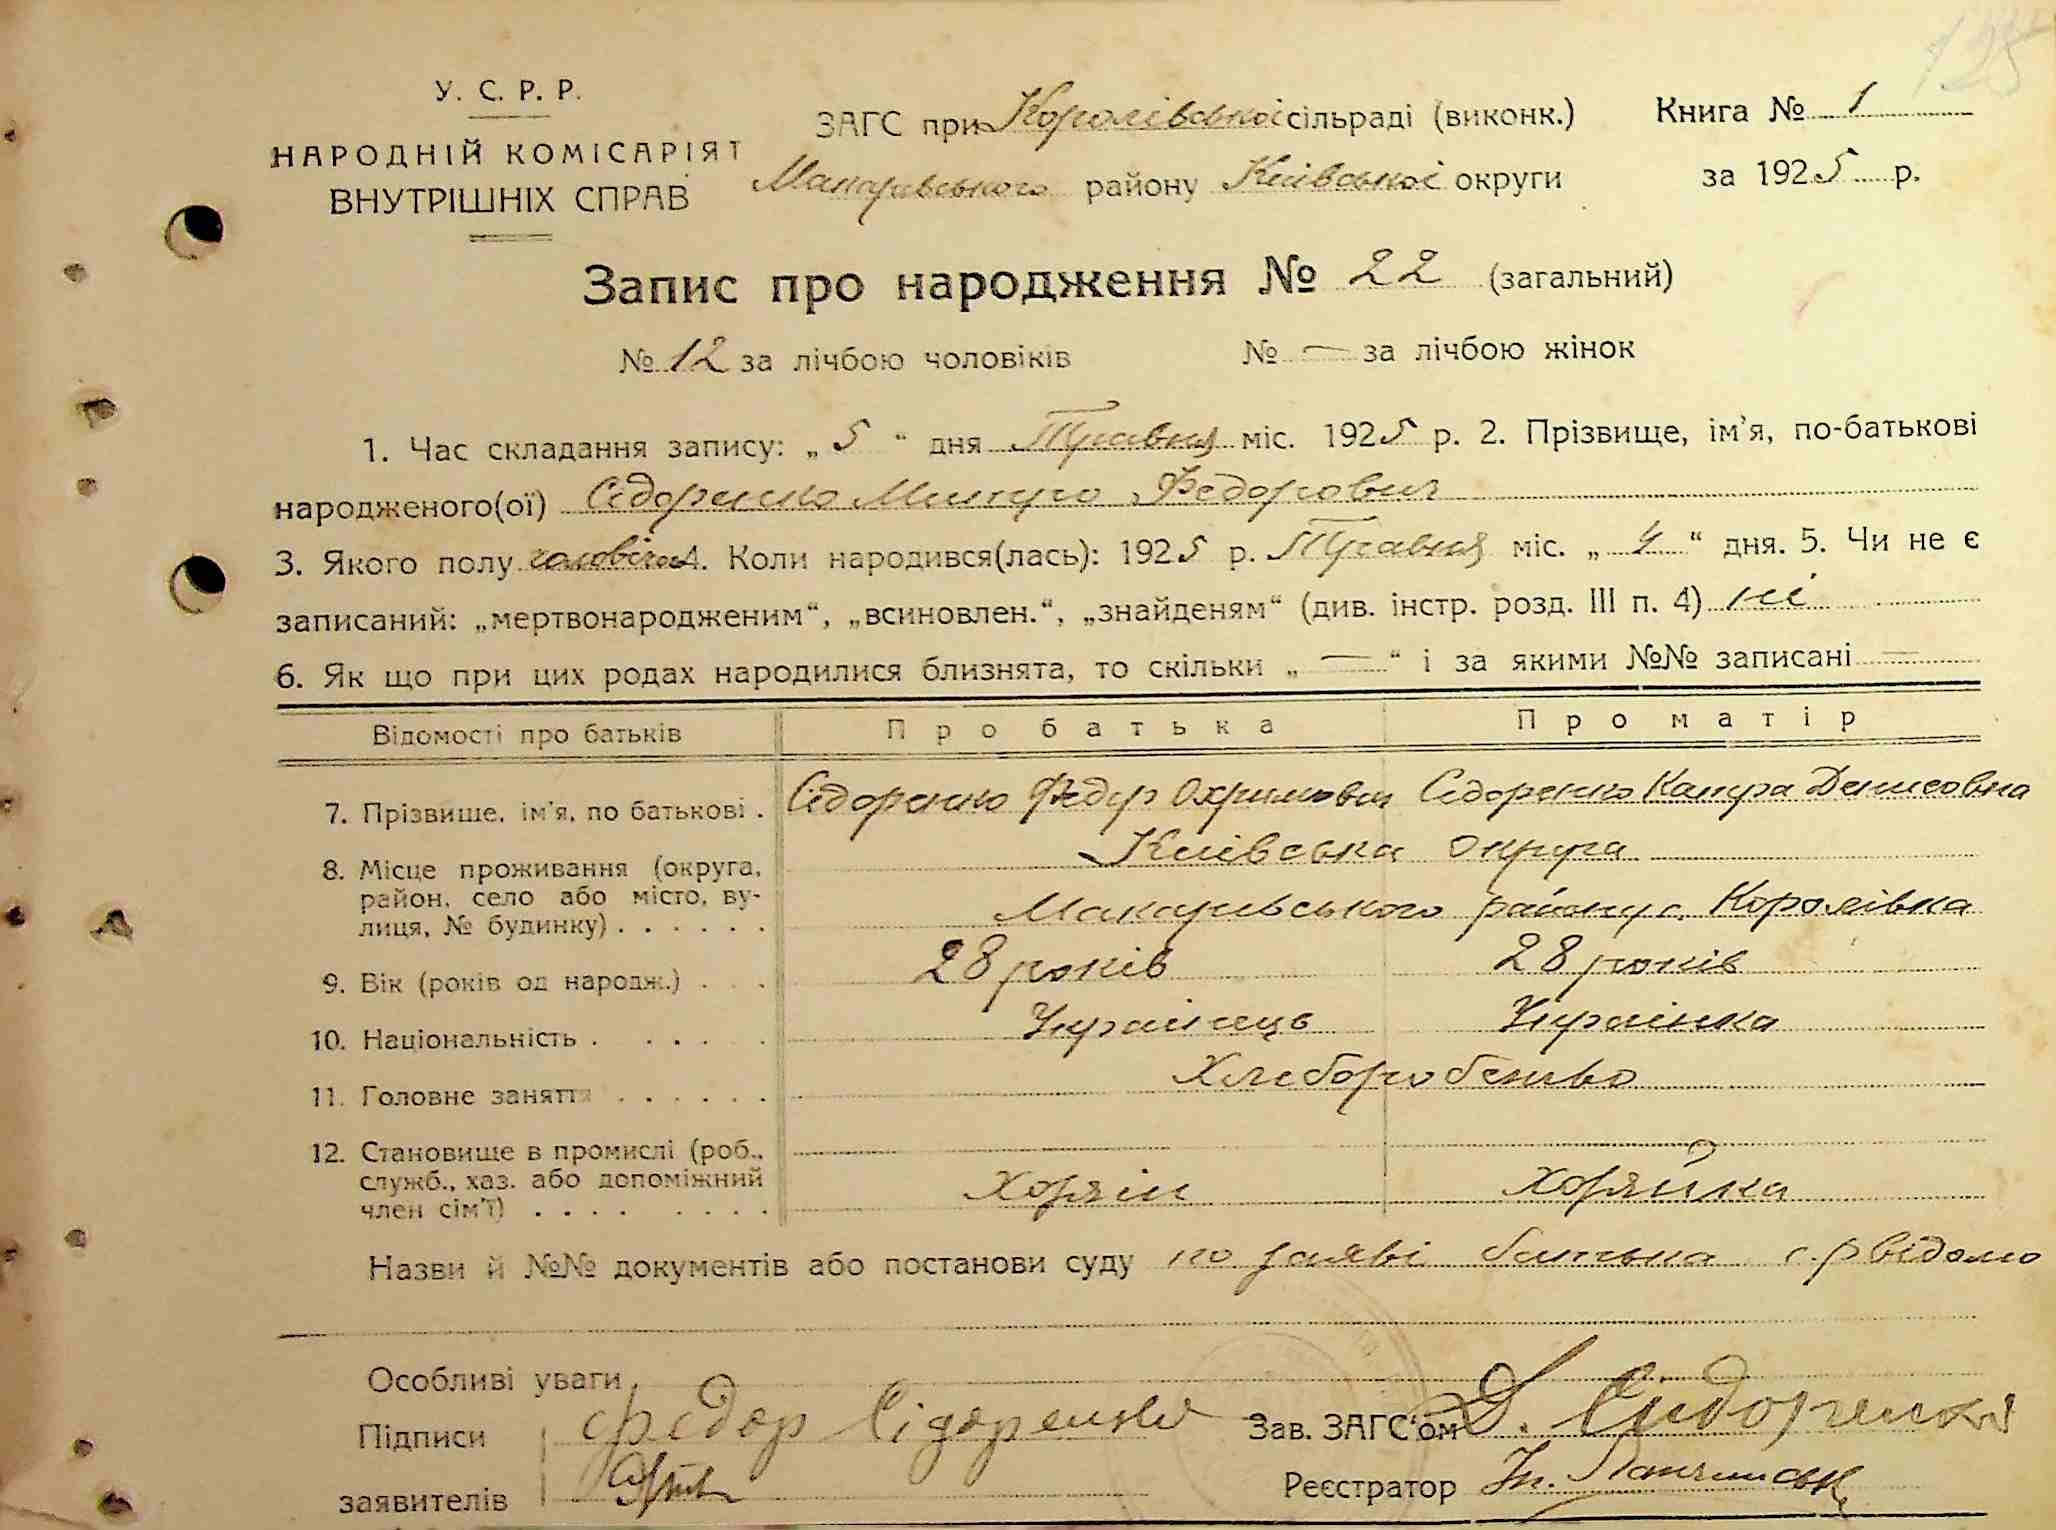 125
У. С. Р. Р.
НАРОДНІЙ КОМІСАРІЯТ
ВНУТРІШНІХ СПРАВ
ЗАГС при Королівській сільраді (виконк.)
Макарівського району Київської округи
Книга № 1
за 1925 р.
Запис про народження № 22 (загальний)
№ 12 за лічбою чоловіків № — за лічбою жінок
1. Час складання запису: „ 5 “ дня Травня міс. 1925 р. 2. Прізвище, ім’я, по-батькові
народженого(ої) Сідоренко Микула Федорович
3. Якого полу чоловіча 4. Коли народився(лась): 1925 р. Травня міс. „ 4 “ дня. 5. Чи не є
записаний: „мертвонародженим“, „всиновлен.“, „знайденям“ (див. інстр. розд. III п. 4) ні
6. Як що при цих родах народилися близнята, то скільки „ — “ і за якими №№ записані —
Відомості про батьків Про батька Про матір
7. Прізвище, ім’я, по батькові . Сідоренко Федір Охримович Сідоренко Капура Денисовна
8. Місце проживання (округа, Київська округа
район, село або місто, ву- Макарівського району с. Королівка
лиця, № будинку) . . . . . .
9. Вік (років од народж.) . . . 28 років 28 років
10. Національність . . . . . Українець Українка
11. Головне заняття . . . . . . Хліборобство
12. Становище в промислі (роб.,
служб., хаз. або допоміжний Хозяін хозяйка
член сім’ї) . . . . . . . .
Назви й №№ документів або постанови суду по заяві батька
Особливі уваги
Підписи Федор Сідоренко Зав. ЗАГС‘ом Д. Сидоренко
заявителів Реєстратор